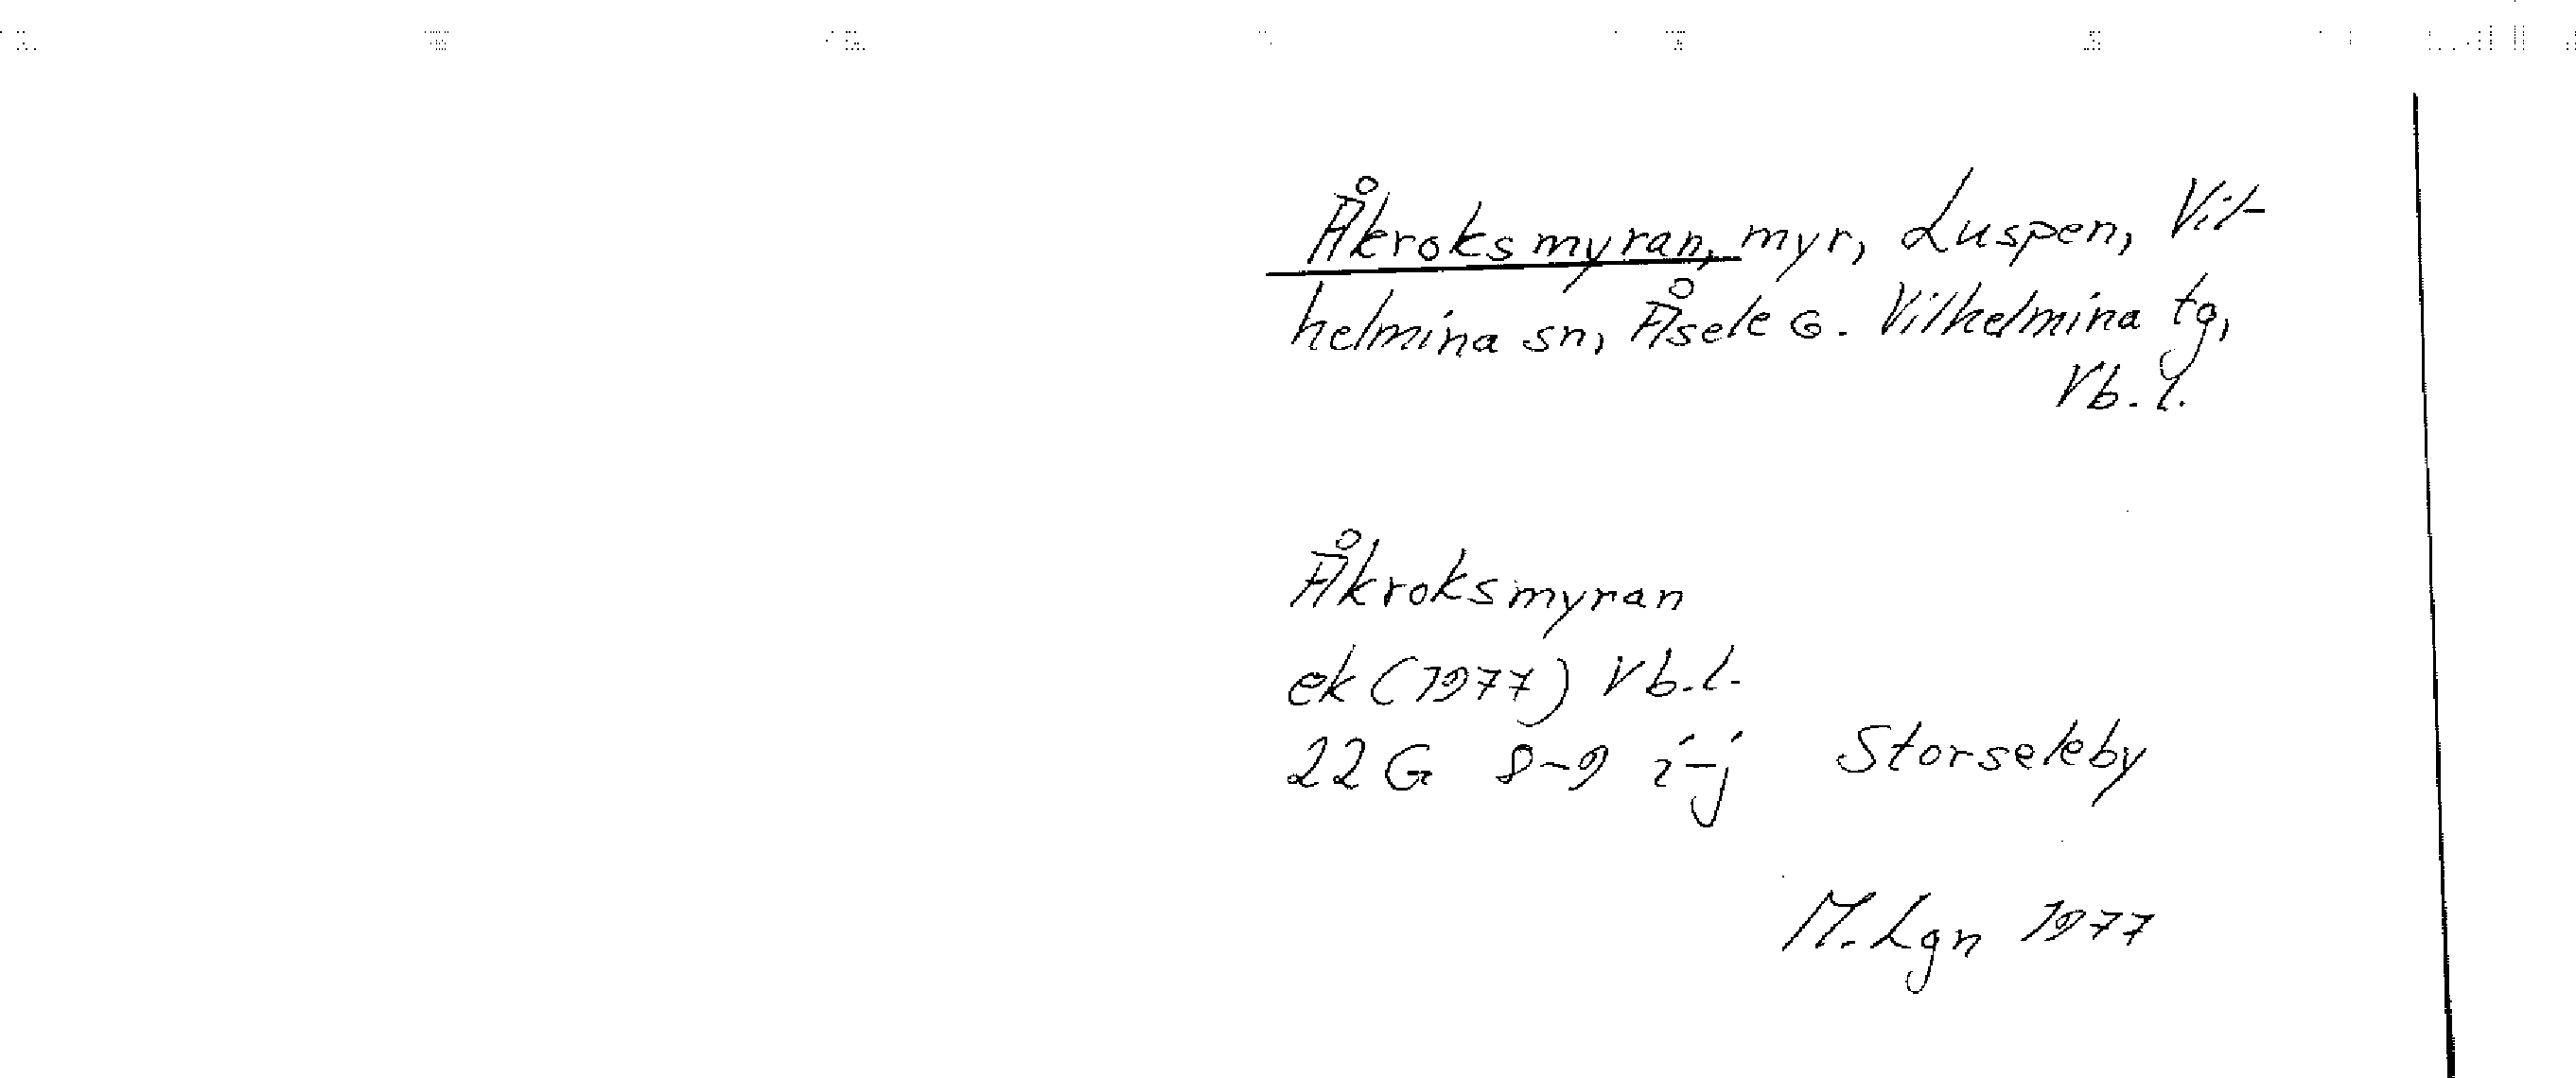 Åkroksmyran, myr, Luspen, Vil-
helmina sn, Åsele G. Vilhelmina tg,
Vb. l.
Åkroksmyran
ek (1977) Vb.l.
22 G 8-9 i-j Storseleby
M. Lgn 1977